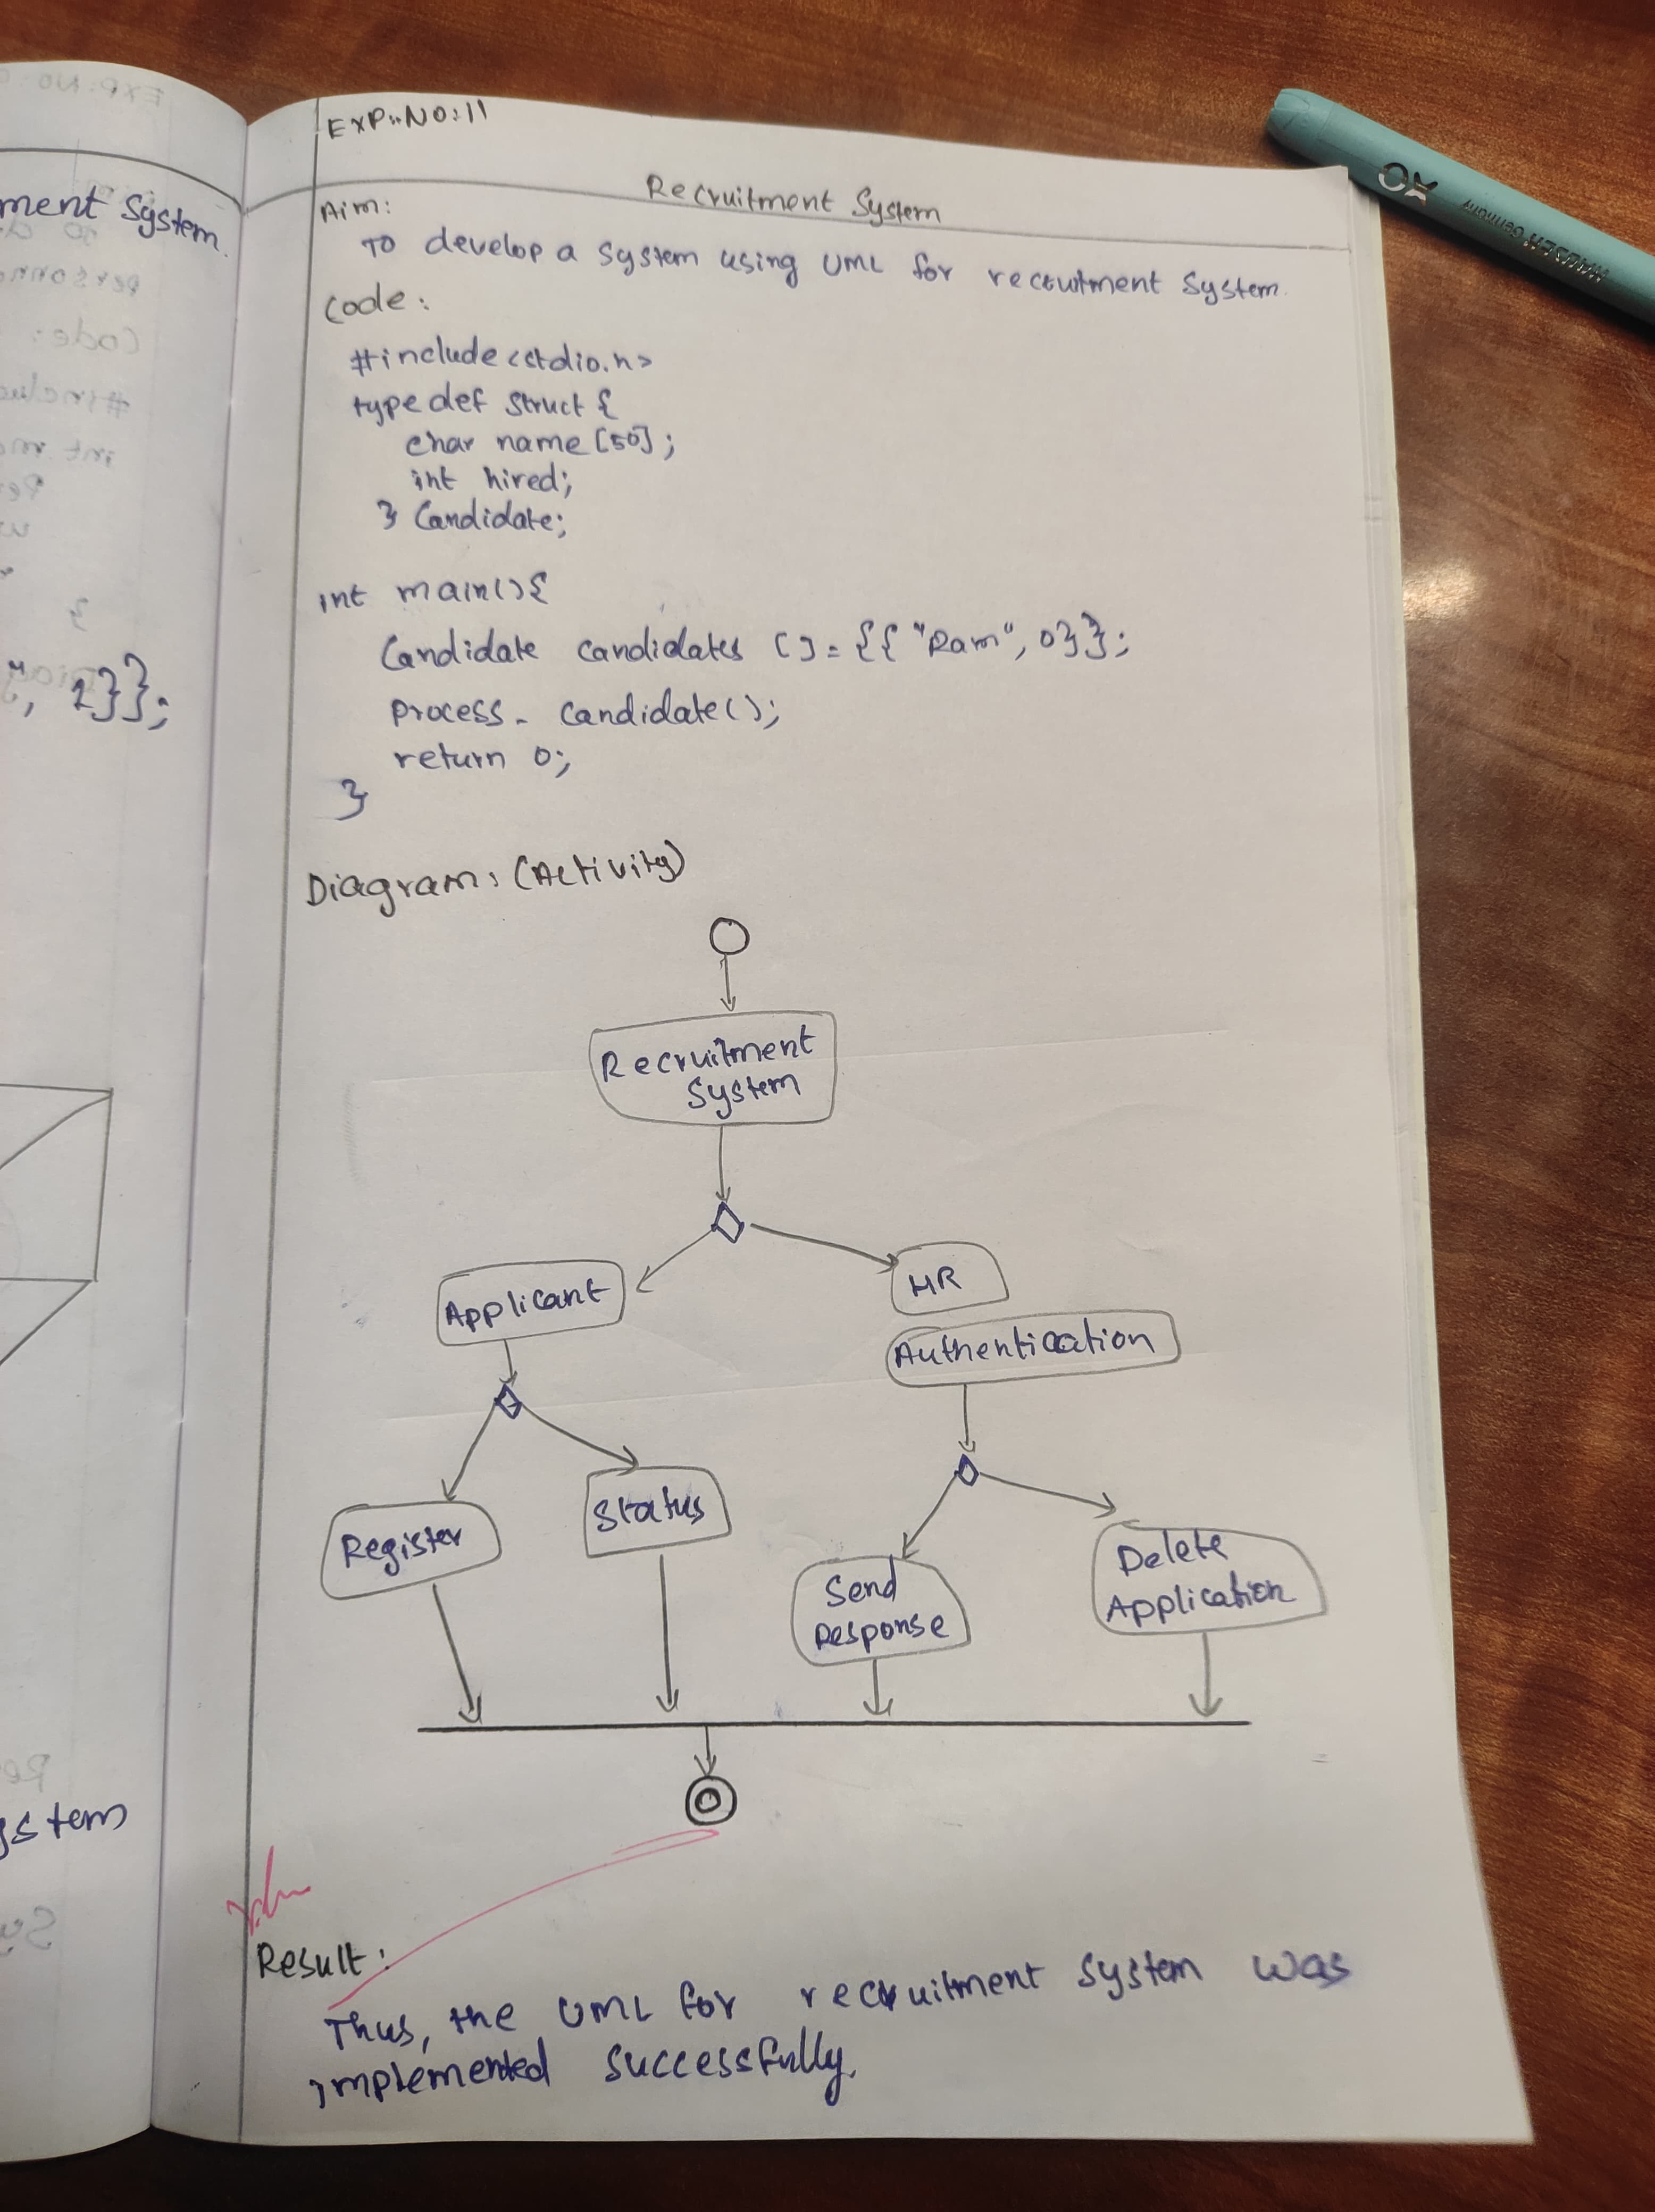 ment System.
", 1}};
ystem
EXP:NO:11
Recruitment System
Aim:
To develop a system using UML for recruitment System.
Code:
#include<stdio.h>
typedef struct {
char name [50];
int hired;
} Candidate;
int main(){
Candidate candidates []={{"Ram", 0}};
process_ candidate();
return 0;
}
Diagram: (Activity)
Recruitment
System
Applicant
HR
Authentication
Register
Status
Send
Response
Delete
Application
Result:
Thus, the UML for recruitment system was
implemented successfully.
OX
HAUSER Germany